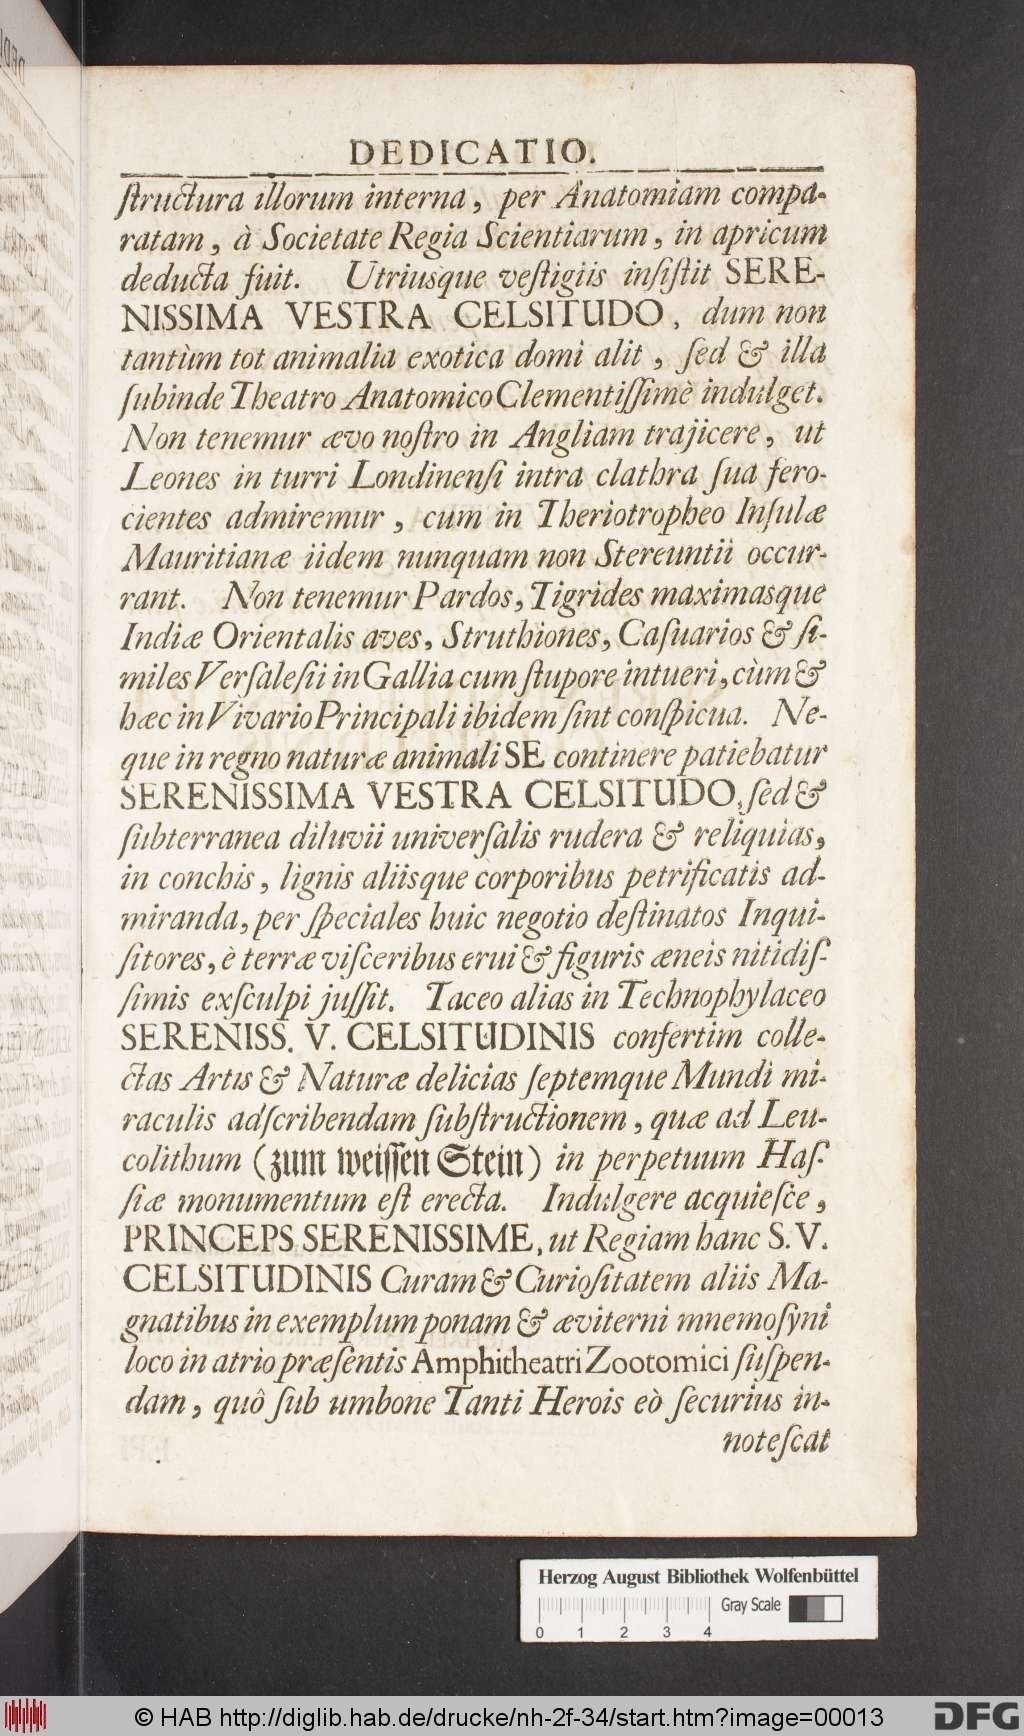 DEDICATIO.
ſtructura illorum interna, per Anatomiam compa-
ratam, à Societate Regia Scientiarum, in apricum
deducta fuit. Utriusque veſtigiis inſiſtit SERE-
NISSIMA VESTRA CELSITUDO, dum non
tantùm tot animalia exotica domi alit, ſed & illa
ſubinde Theatro Anatomico Clementiſſimè indulget.
Non tenemur ævo noſtro in Angliam trajicere, ut
Leones in turri Londinenſi intra clathra ſua fero-
cientes admiremur, cum in Theriotropheo Inſulæ
Mauritianæ iidem nunquam non Stereuntii occur-
rant. Non tenemur Pardos, Tigrides maximasque
Indiæ Orientalis aves, Struthiones, Caſuarios & ſi-
miles Verſaleſii in Gallia cum ſtupore intueri, cùm &
hæc in Vivario Principali ibidem ſint conſpicua. Ne-
que in regno naturæ animali SE continere patiebatur
SERENISSIMA VESTRA CELSITUDO, ſed &
ſubterranea diluvii univerſalis rudera & reliquias,
in conchis, lignis aliisque corporibus petrificatis ad-
miranda, per ſpeciales huic negotio deſtinatos Inqui-
ſitores, è terræ viſceribus erui & figuris æneis nitidiſ-
ſimis exſculpi juſſit. Taceo alias in Technophylaceo
SERENISS. V. CELSITUDINIS confertim colle-
ctas Artis & Naturæ delicias ſeptemque Mundi mi-
raculis adſcribendam ſubſtructionem, quæ ad Leu-
colithum (zum weiſſen Stein) in perpetuum Haſ-
ſiæ monumentum eſt erecta. Indulgere acquieſce,
PRINCEPS SERENISSIME, ut Regiam hanc S. V.
CELSITUDINIS Curam & Curioſitatem aliis Ma-
gnatibus in exemplum ponam & æviterni mnemoſyni
loco in atrio præſentis Amphitheatri Zootomici ſuſpen-
dam, quô ſub umbone Tanti Herois eò ſecurius in-
noteſcat
Herzog August Bibliothek Wolfenbüttel
Gray Scale
0 1 2 3 4
© HAB http://diglib.hab.de/drucke/nh-2f-34/start.htm?image=00013
DFG